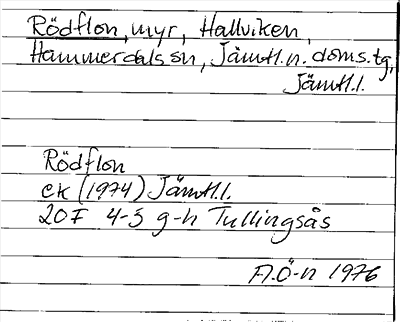 Rödflon, myr, Hallviken,
Hammerdals sn, Jämtl.n. doms.tg,
Jämtl.l.
Rödflon
ek (1974) Jämtl.l.
20F 4-5 g-h Tullingsås
A.Ö-n 1976